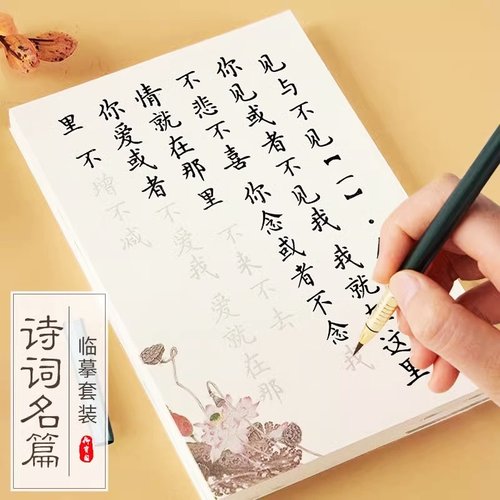 见与不见【一】·
你见或者不见我 我就在这里
不悲不喜 你念或者不念我
情就在那里 不来不去
你爱或者不爱我 爱就在那
里 不增不减
临摹套装
诗词名篇